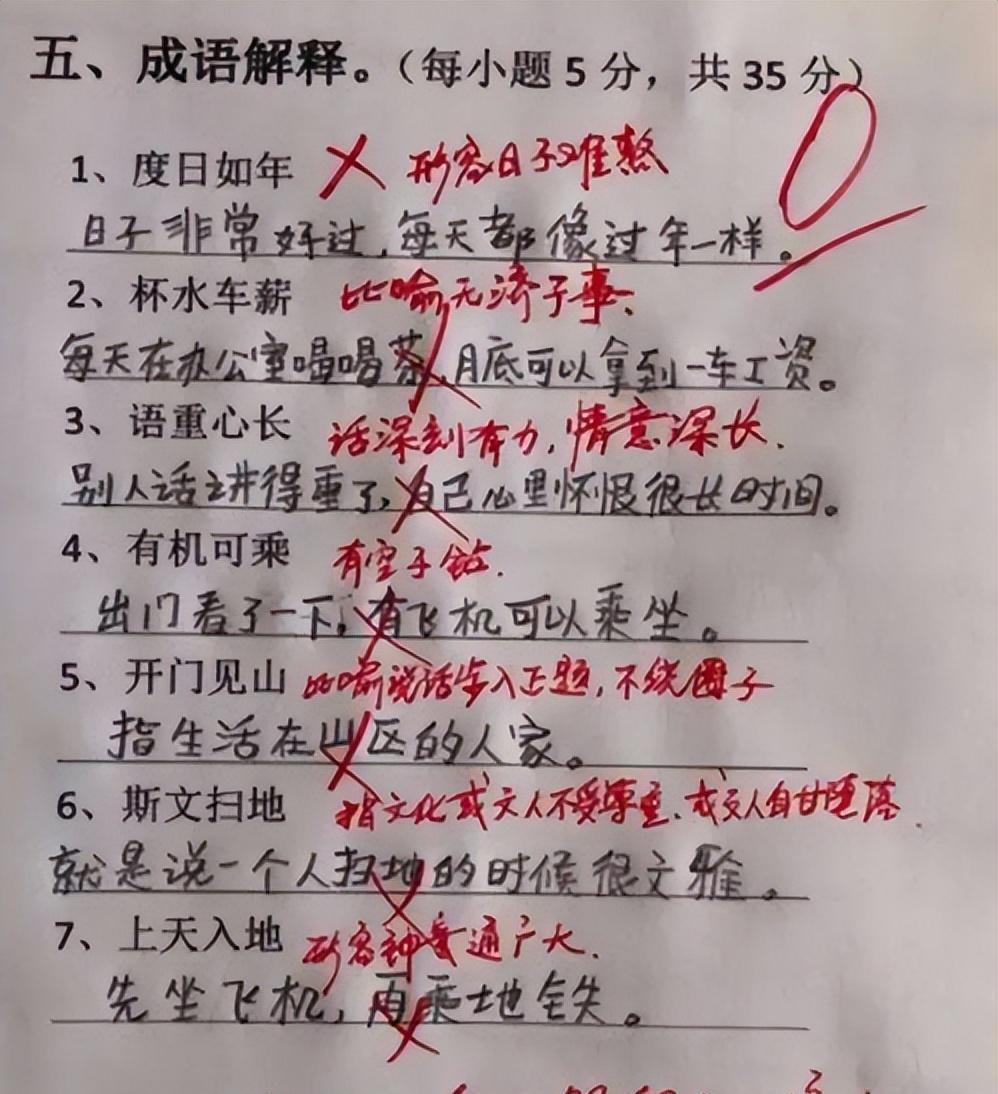 五、成语解释。(每小题5分，共35分)
1、度日如年 形容日子难熬
日子非常好过，每天都像过年一样。
2、杯水车薪 比喻无济于事.
每天在办公室喝喝茶，月底可以拿到一车工资。
3、语重心长 话深刻有力，情意深长.
别人话讲得重了，自己心里怀恨很长时间。
4、有机可乘 有空子钻.
出门看了一下，有飞机可以乘坐。
5、开门见山 比喻说话步入正题，不绕圈子
指生活在山区的人家。
6、斯文扫地 指文化或文人不受尊重、或文人自甘堕落.
就是说一个人扫地的时候很文雅。
7、上天入地 形容神通广大.
先坐飞机，再乘地铁。